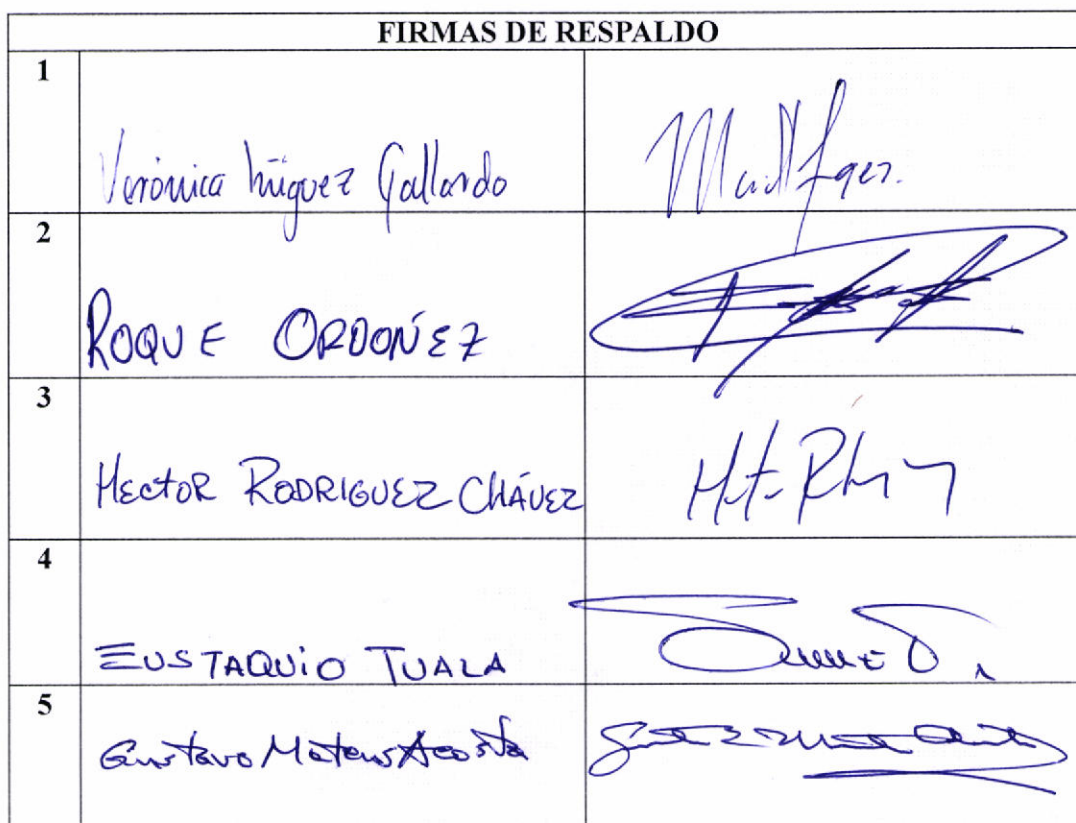 FIRMAS DE RESPALDO
1
Verónica Iñiguez Gallardo
2
ROQUE ORDOÑEZ
3
HECTOR RODRIGUEZ CHÁVEZ
4
EUSTAQUIO TUALA
5
Gustavo Mateus Acosta